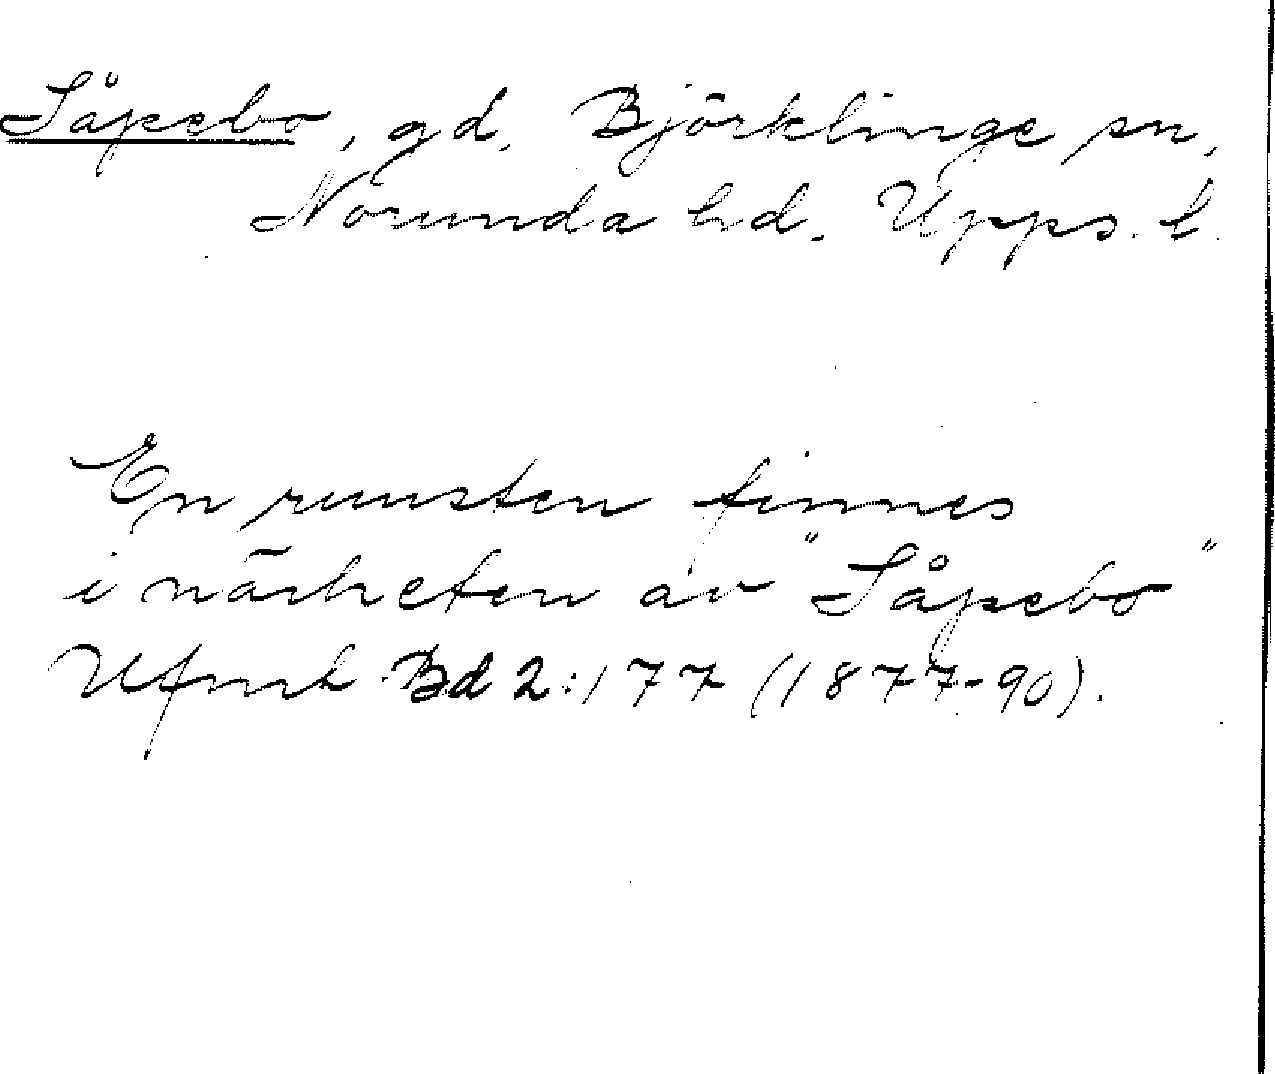 Såpebo, gd, Björklinge sn,
Norunda hd. Upps. l.
En runsten finnes
i närheten av "Såpebo"
Ufmt Bd 2:177 (1877-90).